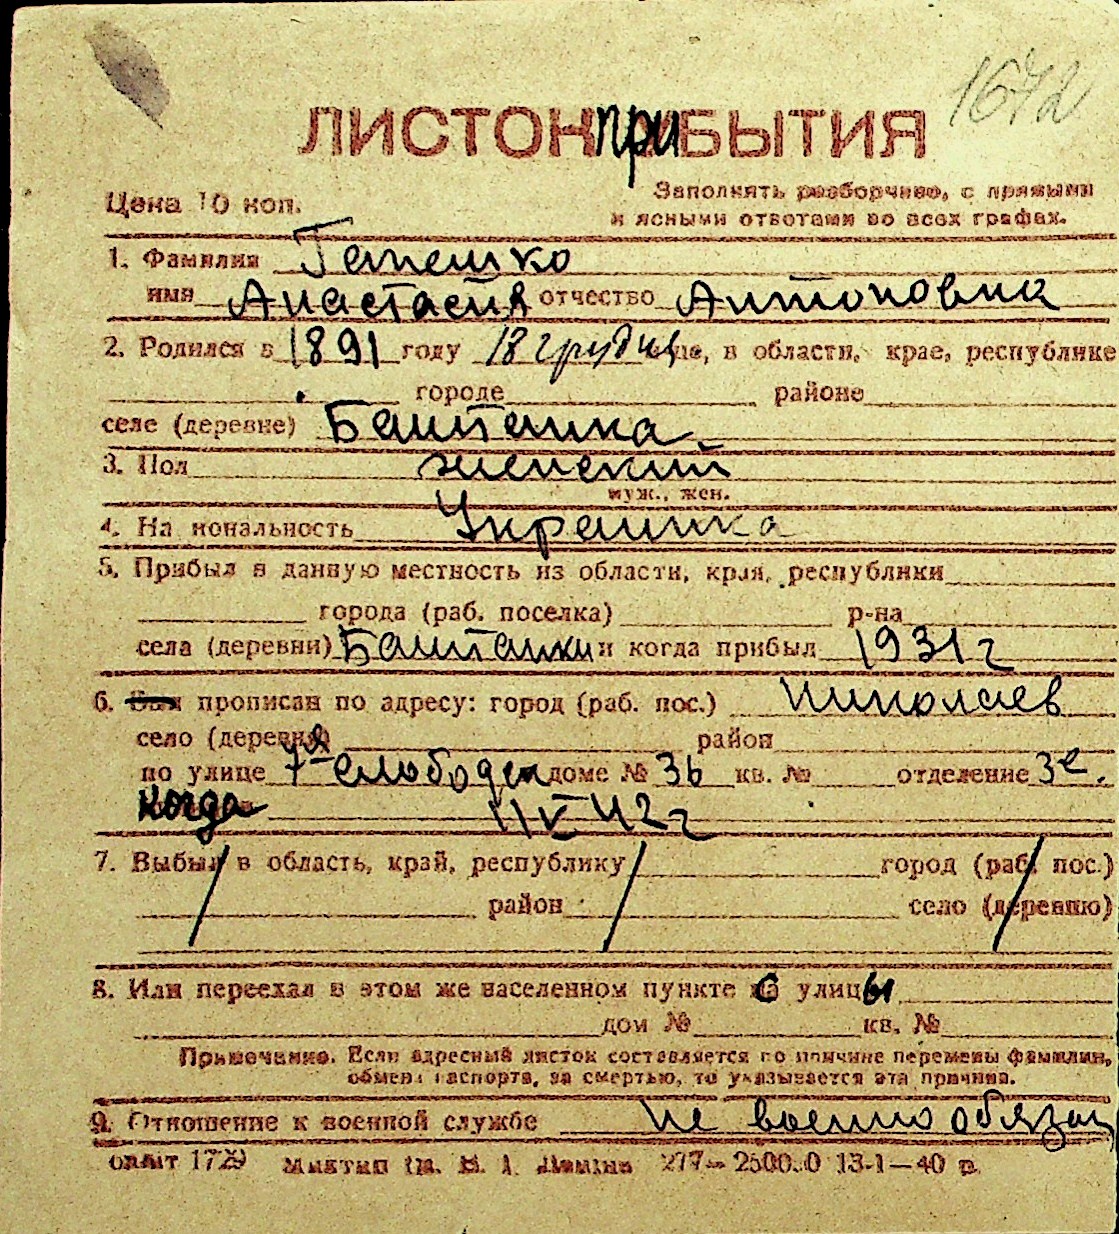 1672
ЛИСТОК при БЫТИЯ
Цена 10 коп.
Заполнять разборчиво, с прямыми
и ясными ответами во всех графах.
1. Фамилия
имя Анастасия отчество Антоновна
2. Родился в 1891 году 18 грудня, в области, крае, республике
городе районе
селе (деревне) Баштанка
3. Пол женский
муж., жен.
4. Национальность Украинка
5. Прибыл в данную местность из области, края, республики
города (раб. поселка) р-на
села (деревни) Баштанки и когда прибыл 1931 г
6. Был прописан по адресу: город (раб. пос.) Николаев
село (деревня) район
по улице 7я Слободская доме № 36 кв. № отделение 3е.
когда 11 V 42 г
7. Выбыл в область, край, республику город (раб. пос.)
район село (деревню)
8. Или переехал в этом же населенном пункте с улицы
дом № кв. №
Примечание. Если адресный листок составляется по причине перемены фамилии,
обмена паспорта, за смертью, то указывается эта причина.
9. Отношение к военной службе не военнообязан
277— 13-1—40 г.